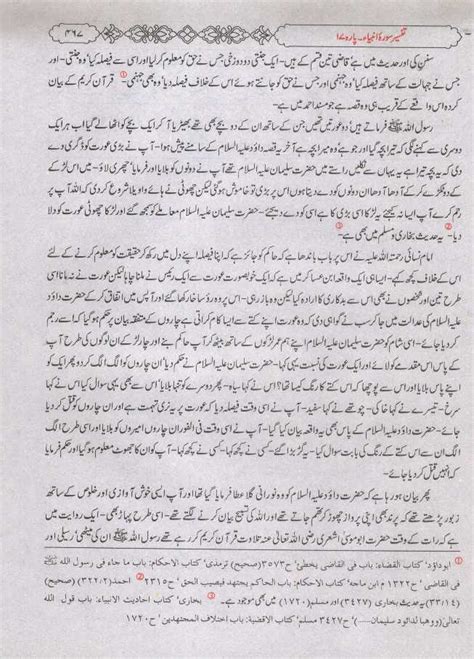 ۴۶۷ تفسیر سورۂ انبیاء۔ پارہ ۱۷
سنن کی اور حدیث میں ہے قاضی تین قسم کے ہیں۔ ایک جنتی دو دوزخی جس نے حق کو معلوم کر لیا اور اسی سے فیصلہ کیا وہ جنتی۔ اور
جس نے جہالت کے ساتھ فیصلہ کیا وہ جہنمی اور جس نے حق کو جانتے ہوئے اس کے خلاف فیصلہ دیا وہ بھی جہنمی ① قرآن کریم کے بیان
کردہ اس واقعے کے قریب ہی وہ قصہ ہے جو مسند احمد میں ہے۔
رسول اللہ ﷺ فرماتے ہیں دو عورتیں تھیں جن کے ساتھ ان کے دو بچے بھی تھے بھیڑیا آ کر ایک بچے کو اٹھا لے گیا اب ہر ایک
دوسری سے کہنے لگی کہ تیرا بچہ گیا اور جو ہے وہ میرا بچہ ہے آخر یہ قصہ داؤد علیہ السلام کے سامنے پیش ہوا۔ آپ نے بڑی عورت کو ڈگری دے
دی کہ یہ بچہ تیرا ہے یہ یہاں سے نکلیں راستے میں حضرت سلیمان علیہ السلام تھے آپ نے دونوں کو بلایا اور فرمایا چھری لاؤ۔ میں اس لڑکے
کے دو ٹکڑے کر کے آدھا آدھا ان دونوں کو دے دیتا ہوں اس پر بڑی تو خاموش ہو گئی لیکن چھوٹی نے ہائے واویلا شروع کر دیا کہ اللہ آپ پر
رحم کرے آپ ایسا نہ کیجئے یہ لڑکا اسی بڑی کا ہے اسی کو دے دیجئے۔ حضرت سلیمان علیہ السلام معاملے کو سمجھ گئے اور لڑکا چھوٹی عورت کو دلا
دیا۔ ② یہ حدیث بخاری و مسلم میں بھی ہے۔ ③
امام نسائی رحمتہ اللہ علیہ نے اس پر باب باندھا ہے کہ حاکم کو جائز ہے کہ اپنا فیصلہ اپنے دل میں رکھ کر حقیقت کو معلوم کرنے کے لئے
اس کے خلاف کچھ کہے۔ ایسا ہی ایک واقعہ ابن عساکر میں ہے کہ ایک خوبصورت عورت سے ایک رئیس نے ملنا چاہا لیکن عورت نے نہ مانا اسی
طرح تین اور شخصوں نے بھی اس سے بدکاری کا ارادہ کیا لیکن وہ باز رہی۔ اس پر وہ رؤسا خار کھا گئے اور آپس میں اتفاق کر کے حضرت داؤد
علیہ السلام کی عدالت میں جا کر سب نے گواہی دی کہ وہ عورت اپنے کتے سے ایسا کام کراتی ہے چاروں کے متفقہ بیان پر حکم ہو گیا کہ اسے رجم
کر دیا جائے۔ اسی شام کو حضرت سلیمان علیہ السلام اپنے ہم عمر لڑکوں کے ساتھ بیٹھ کر آپ حاکم بنے اور چار لڑکے ان لوگوں کی طرح آپ کے
پاس اس مقدمے کو لائے اور ایک عورت کی نسبت یہی کہا۔ حضرت سلیمان علیہ السلام نے حکم دیا ان چاروں کو الگ الگ کر دو پھر ایک کو
اپنے پاس بلایا اور اس سے پوچھا کہ اس کتے کا رنگ کیسا تھا؟ اس نے کہا سیاہ۔ پھر دوسرے کو تنہا بلایا اس سے بھی یہی سوال کیا اس نے کہا
سرخ۔ تیسرے نے کہا خاکی۔ چوتھے نے کہا سفید۔ آپ نے اسی وقت فیصلہ دیا کہ عورت پر یہ نری تہمت ہے اور ان چاروں کو قتل کر دیا
جائے۔ حضرت داؤد علیہ السلام کے پاس بھی یہ واقعہ بیان کیا گیا۔ آپ نے اسی وقت فی الفور ان چاروں امیروں کو بلایا اور اسی طرح الگ
الگ ان سے اس کتے کے رنگ کی بابت سوال کیا۔ یہ گڑبڑا گئے۔ کسی نے کچھ کہا۔ کسی نے کچھ کہا۔ آپ کو ان کا جھوٹ معلوم ہو گیا اور حکم فرمایا
کہ انہیں قتل کر دیا جائے۔
پھر بیان ہو رہا ہے کہ حضرت داؤد علیہ السلام کو وہ نورانی گلا عطا فرمایا گیا تھا اور آپ ایسی خوش آوازی اور خلوص کے ساتھ
زبور پڑھتے تھے کہ پرند بھی اپنی پرواز چھوڑ کر تھم جاتے تھے اور اللہ کی تسبیح بیان کرنے لگتے تھے۔ اسی طرح پہاڑ بھی۔ ایک روایت میں
ہے کہ رات کے وقت حضرت ابو موسیٰ اشعری رضی اللہ تعالیٰ عنہ تلاوت قرآن کریم کر رہے تھے رسول اللہ ﷺ ان کی میٹھی رسیلی اور
① ابوداؤد' کتاب القضاء: باب فی القاضی یخطئ' ح۳۵۷۳ (صحیح) ترمذی' کتاب الاحکام: باب ما جاء عن رسول اللہ ﷺ
فی القاضی' ح۱۳۲۲ م ابن ماجہ' کتاب الاحکام: باب الحاکم یجتهد فیصیب الحق' ح۲۳۱۵ ② احمد (۳۲۲/۲) صحیح
(۳۳/۱۴) یہ حدیث بخاری (۳۴۲۷) اور مسلم (۱۷۲۰) میں بھی موجود ہے۔ ③ بخاری' کتاب احادیث الانبیاء: باب قول اللہ
تعالیٰ (وهبنا لدائود سلیمان.....)' ح۳۴۲۷' مسلم' کتاب الاقضیۃ: باب اختلاف المجتهدین' ح۱۷۲۰